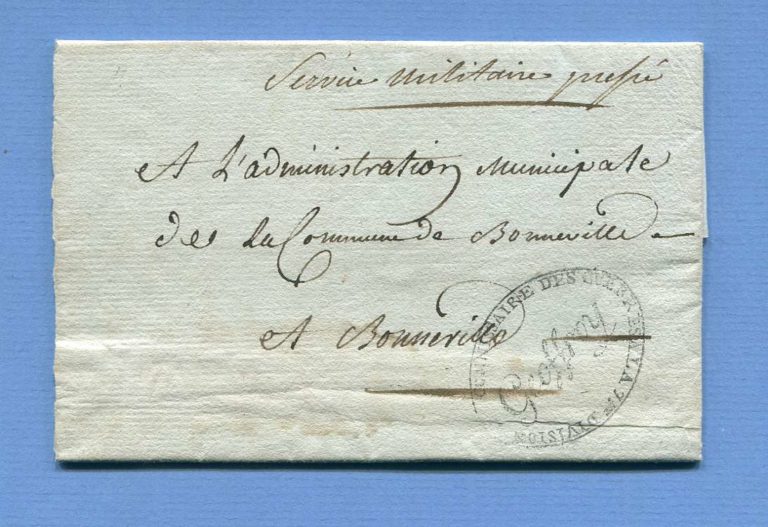 Service militaire pressé
A L'administration Municipale
de la Commune de Bonneville
A Bonneville
COMMISSAIRE DES GUERRES A LA 7me DIVISION